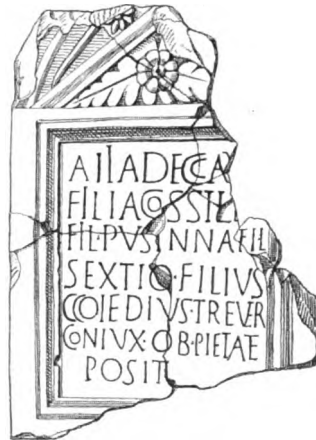 AIIADECCA
FILIACOSSILI
FIL·PVSINNAFIL
SEXTIO·FILIVS
CCOIEDIVS·TREVER
CONIVX·OB·PIETAE
POSIT